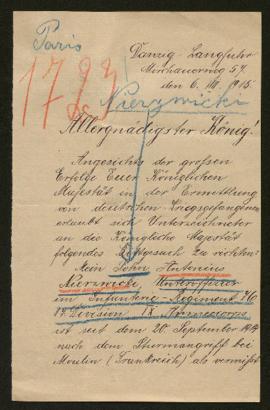 Paris
Danzig-Langfuhr
Mirchauerweg 57.
den 6. VII. 1915.
1723
Nierzwicki
Allergnädigster König!
Angesichts der großen
Erfolge Euer Königlichen
Majestät in der Ermittlung
von deutschen Kriegsgefangenen
erlaubt sich Unterzeichneter
an die Königliche Majestät
folgendes Bittgesuch zu richten:
Mein Sohn Antonius
Nierzwicki, Unteroffizier
im Infanterie-Regiment 76
17 Division IX Armeecorps
ist seit dem 20 September 1914
nach dem Sturmangriff bei
Moulin (Frankreich) als vermißt